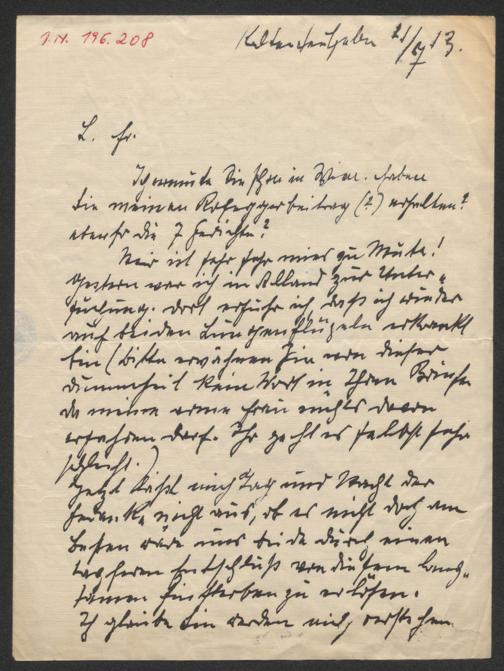 I.N. 196.208
Kaltenleutgeben 21/7 13.
L. Fr.
Ich vermute Sie schon in Wien. Haben
Sie meinen Roseggerbeitrag (?) erhalten?
ebenso die 7 Gedichte?
Mir ist sehr sehr mies zu Mute!
Gestern war ich in Alland zur Unter-
suchung. dort erfuhr ich, daß ich wieder
auf beiden Lungenflügeln erkrankt
bin (bitte erwähnen Sie von dieser
Dummheit kein Wort in Ihren Briefen
da meine arme Frau nichts davon
erfahren darf. Ihr geht es selbst sehr
schlecht.)
Jetzt läßt mich Tag und Nacht der
Gedanke nicht aus, ob es nicht doch am
Besten wäre uns beide durch einen
tapferen Entschluß von diesem lang-
samen Hinsterben zu erlösen.
Ich glaube Sie werden mich verstehen.